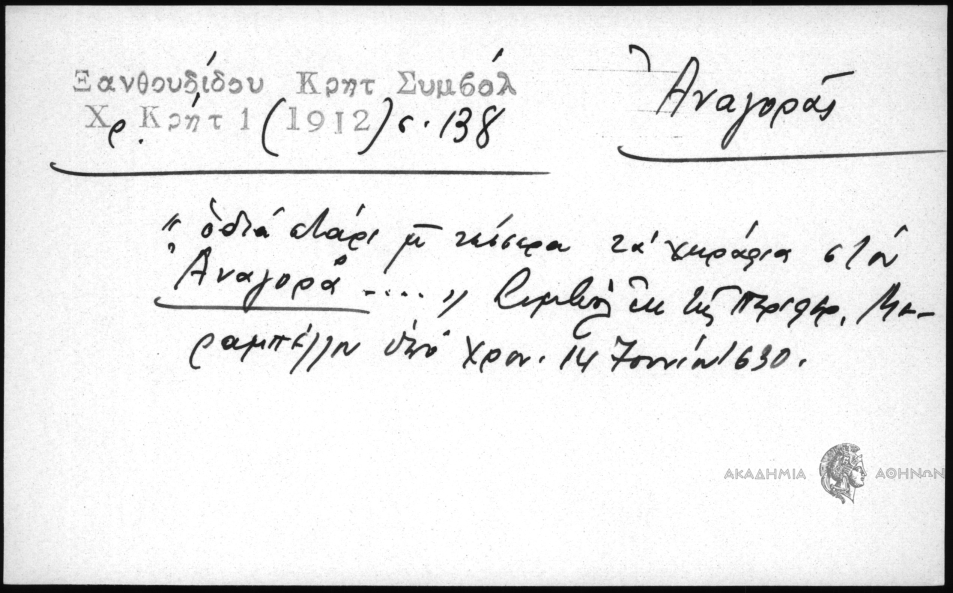 Ξανθουδίδου Κρητ Συμβόλ
Χρ. Κρήτ 1 (1912) σ. 138
Ἀναγορᾶς
" ὀδιά στάρι μ τέσσερα τὰ χωράφια στὸν
Ἀναγορᾶ ..... " Συμβόλ ἐκ τῆς περιφερ. Με-
ραμπέλλου ὑπό χρον. 14 Ἰουνίου 1630.
ΑΚΑΔΗΜΙΑ ΑΘΗΝΩΝ